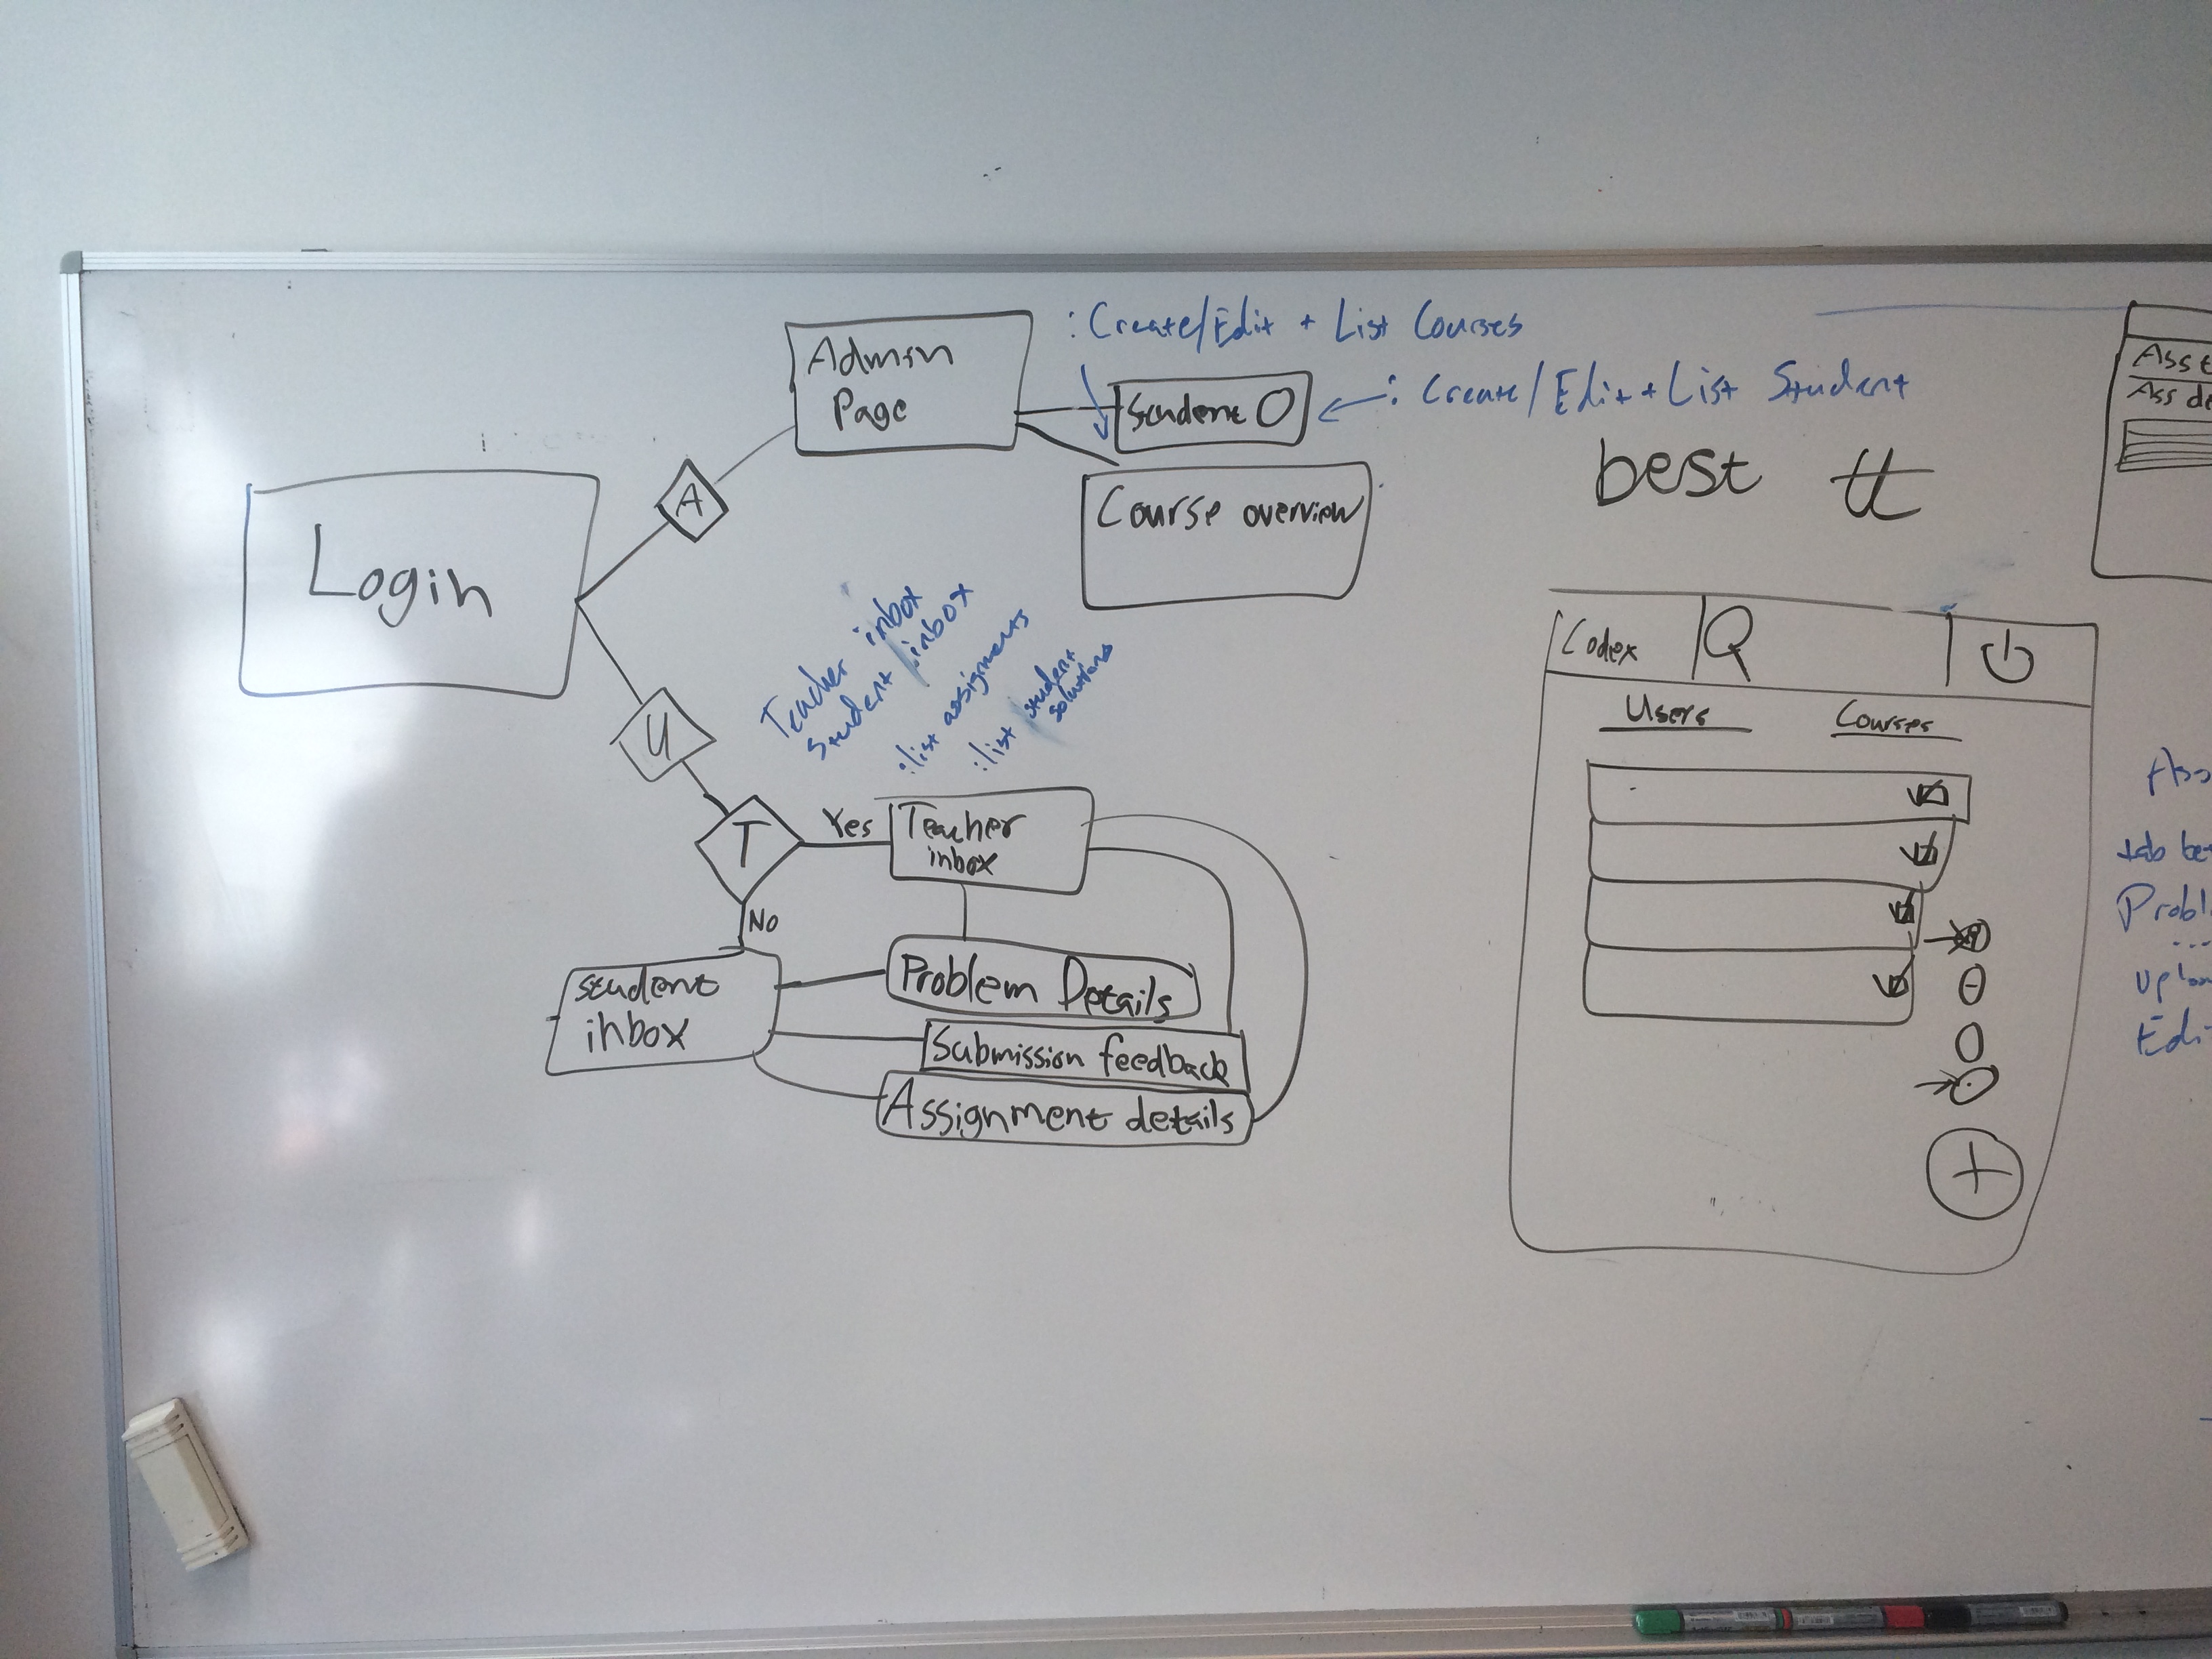 : Create/Edit + List Courses
Admin
Page
Student O
: Create/Edit + List Student
Course overview
best tt
Login
A
U
Teacher inbox
Student inbox
: list assignments
: list student
solutions
T
Yes
Teacher
inbox
No
Student
inbox
Problem Details
Submission feedback
Assignment details
Codex
Users Courses
Ass t
Ass de
Ass
tab be
Probl
...
uploa
Edi